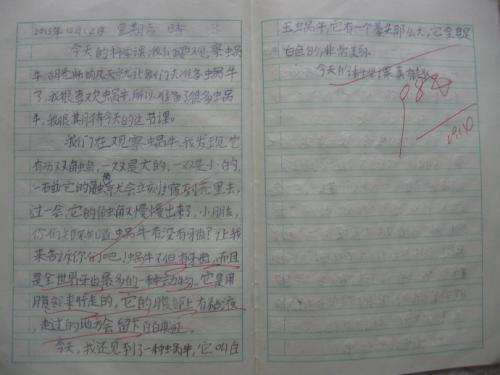 2015年10月12日 星期六 晴
今天的科学课,我们要观察蜗
牛,胡老师前几天就让我们去准备蜗牛
了,我很喜欢蜗牛,所以准备了很多蜗
牛,我很期待今天的这节课。
我们在观察蜗牛,我发现它
有两对触角,一对是大的,一对是小的,
一碰它的触角就会立刻缩到壳里去,
过一会,它的触角又慢慢出来了,小朋友,
你们知不知道蜗牛有没有牙齿?让我
来告诉你们吧!蜗牛不但有牙齿,而且
是全世界牙齿最多的一种动物。它是用
腹部来行走的,它的腹部上有粘液,
走过的地方会留下白白的
今天,我还见到了一种蜗牛,它叫白
玉蜗牛,它有一个拳头那么大,它全身是
白色的,非常美丽。
今天的科学课真有趣